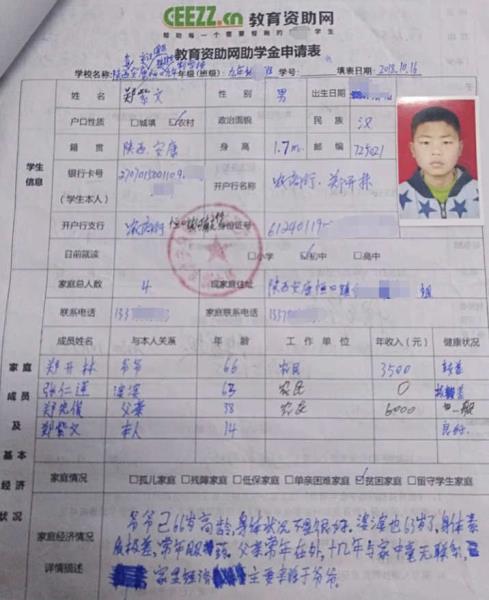 CEEZZ.cn 教育资助网
帮助每一个需要帮助的 学生
教育资助网助学金申请表
学校名称: 年级(班级): 班 学号: 填表日期: 2018.10.16
姓名 郑紫文 性别 男 出生日期
户口性质 □城镇 ☑农村 政治面貌 民族 汉
籍贯 陕西.安康 身高 1.7m 邮编 725021
银行卡号 2707015001109
(学生本人) 开户行名称 郑开林
学生信息
开户行支行 身份证号 61240119
目前就读 □小学 ☑初中 □高中
家庭总人数 4 现家庭住址 陕西安康恒口镇 组
联系电话 家庭联系电话
成员姓名 与本人关系 年龄 工作单位 年收入(元) 健康状况
郑开林 爷爷 66 农民 3500
张仁莲 婆婆 63 农民 0
父亲 38 农民 6000 一般
郑紫文 本人 14 良好
家庭成员及基本经济状况
家庭情况 □孤儿家庭 □残障家庭 □低保家庭 □单亲困难家庭 ☑贫困家庭 □留守学生家庭
家庭经济情况详情描述
爷爷已66岁高龄,身体状况不是很好。婆婆也63岁了,身体素
质极差,常年服药。父亲常年在外,十几年与家中毫无联系,
家里经济 主要来源于爷爷。